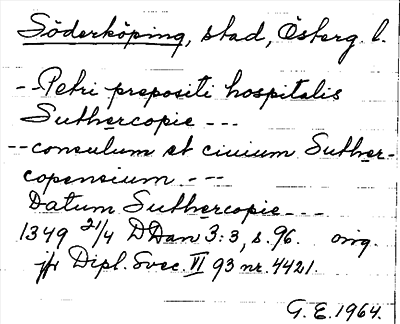 Söderköping, stad, Österg. l.
-- Petri prepositi hospitalis
Suthercopie ---
-- consulum et ciuium Suther-
copensium ---
Datum Suthercopie ---
1349 21/4 DDan 3:3, s. 96. orig.
jfr Dipl. Svec. VI 93 nr. 4421.
G. E. 1964.